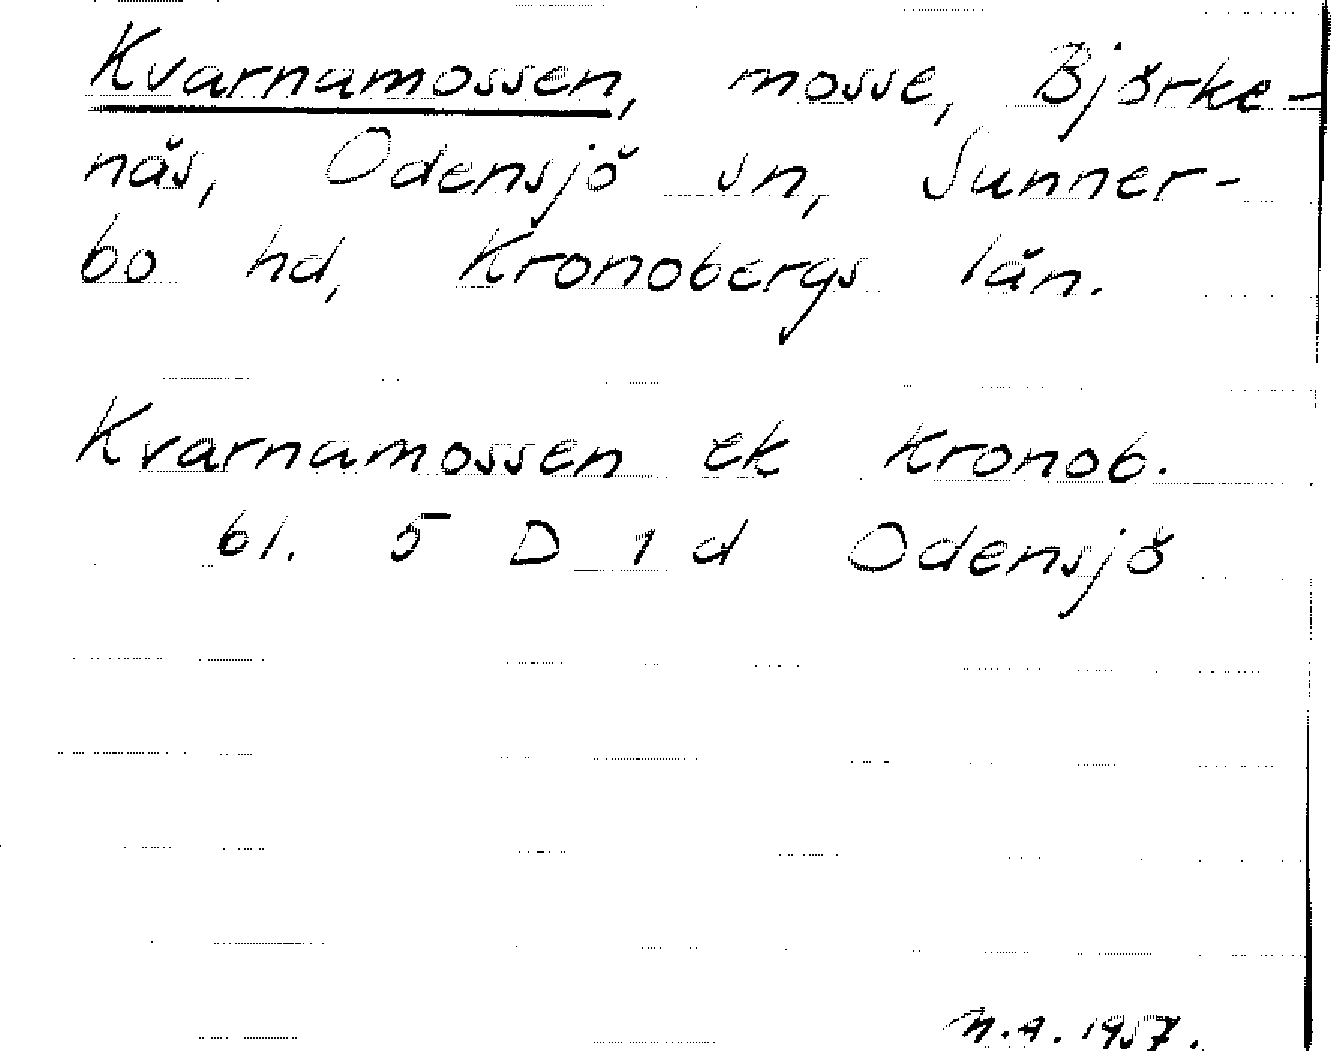 Kvarnamossen, mosse, Björke-
näs, Odensjö sn, Sunner-
bo hd, Kronobergs län.
Kvarnamossen ek Kronob.
bl. 5 D 1 d Odensjö
M.A. 1957.